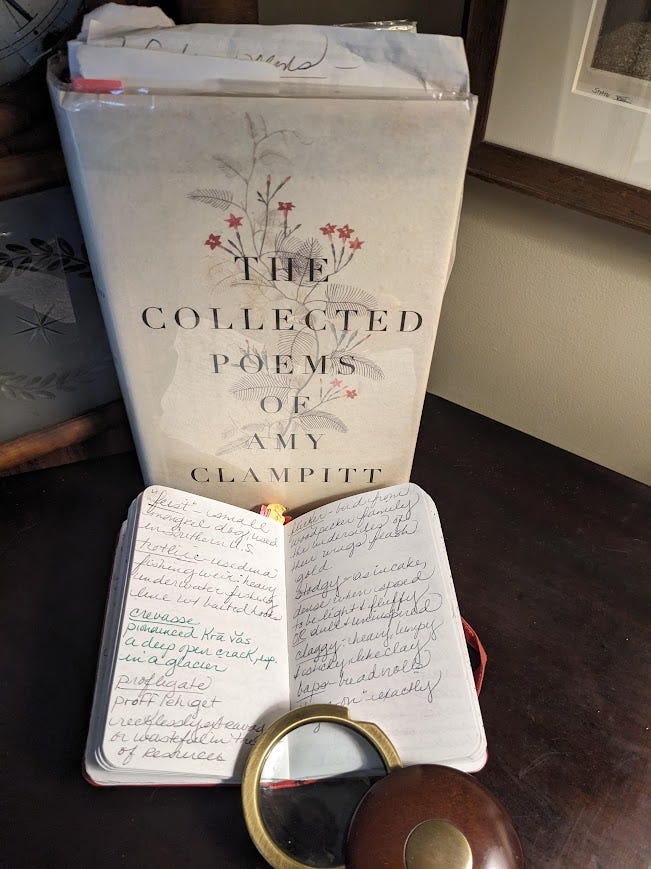 THE
COLLECTED
POEMS
OF
AMY
CLAMPITT
"feist" - small
mongrel dog used
in Southern U.S.
trotline - used in a
fishing weir: heavy
underwater fishing
line w/ baited hooks
crevasse
pronounced Kra vas
a deep open crack, esp.
in a glacier
profligate
proff leh get
recklessly extravag
or wasteful in the
of resources
flicker - bird from
woodpecker family
the undersides of
their wings flash
gold
stodgy - as in cakes
dense when sposed
to be light & fluffy
or dull & uninspired
claggy - heavy, lumpy
& sticky like clay
baps - bread rolls
on" exactly